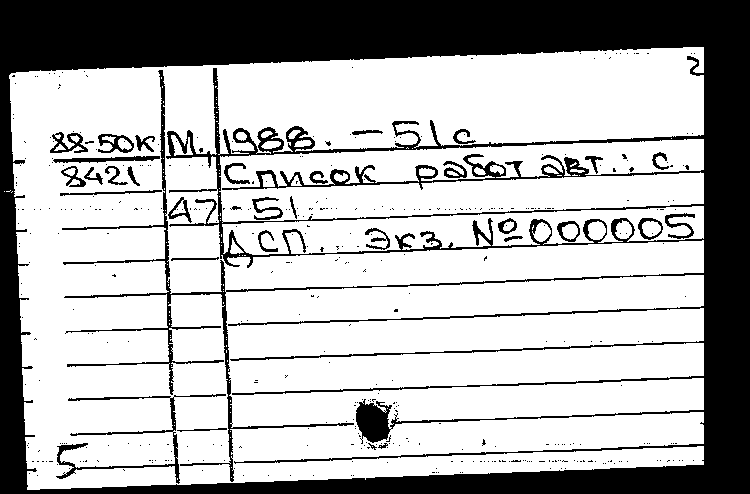 2
88-50К М., 1988. – 51 с
8421 Список работ авт.: с.
47-51.
ДСП. Экз. №000005
5